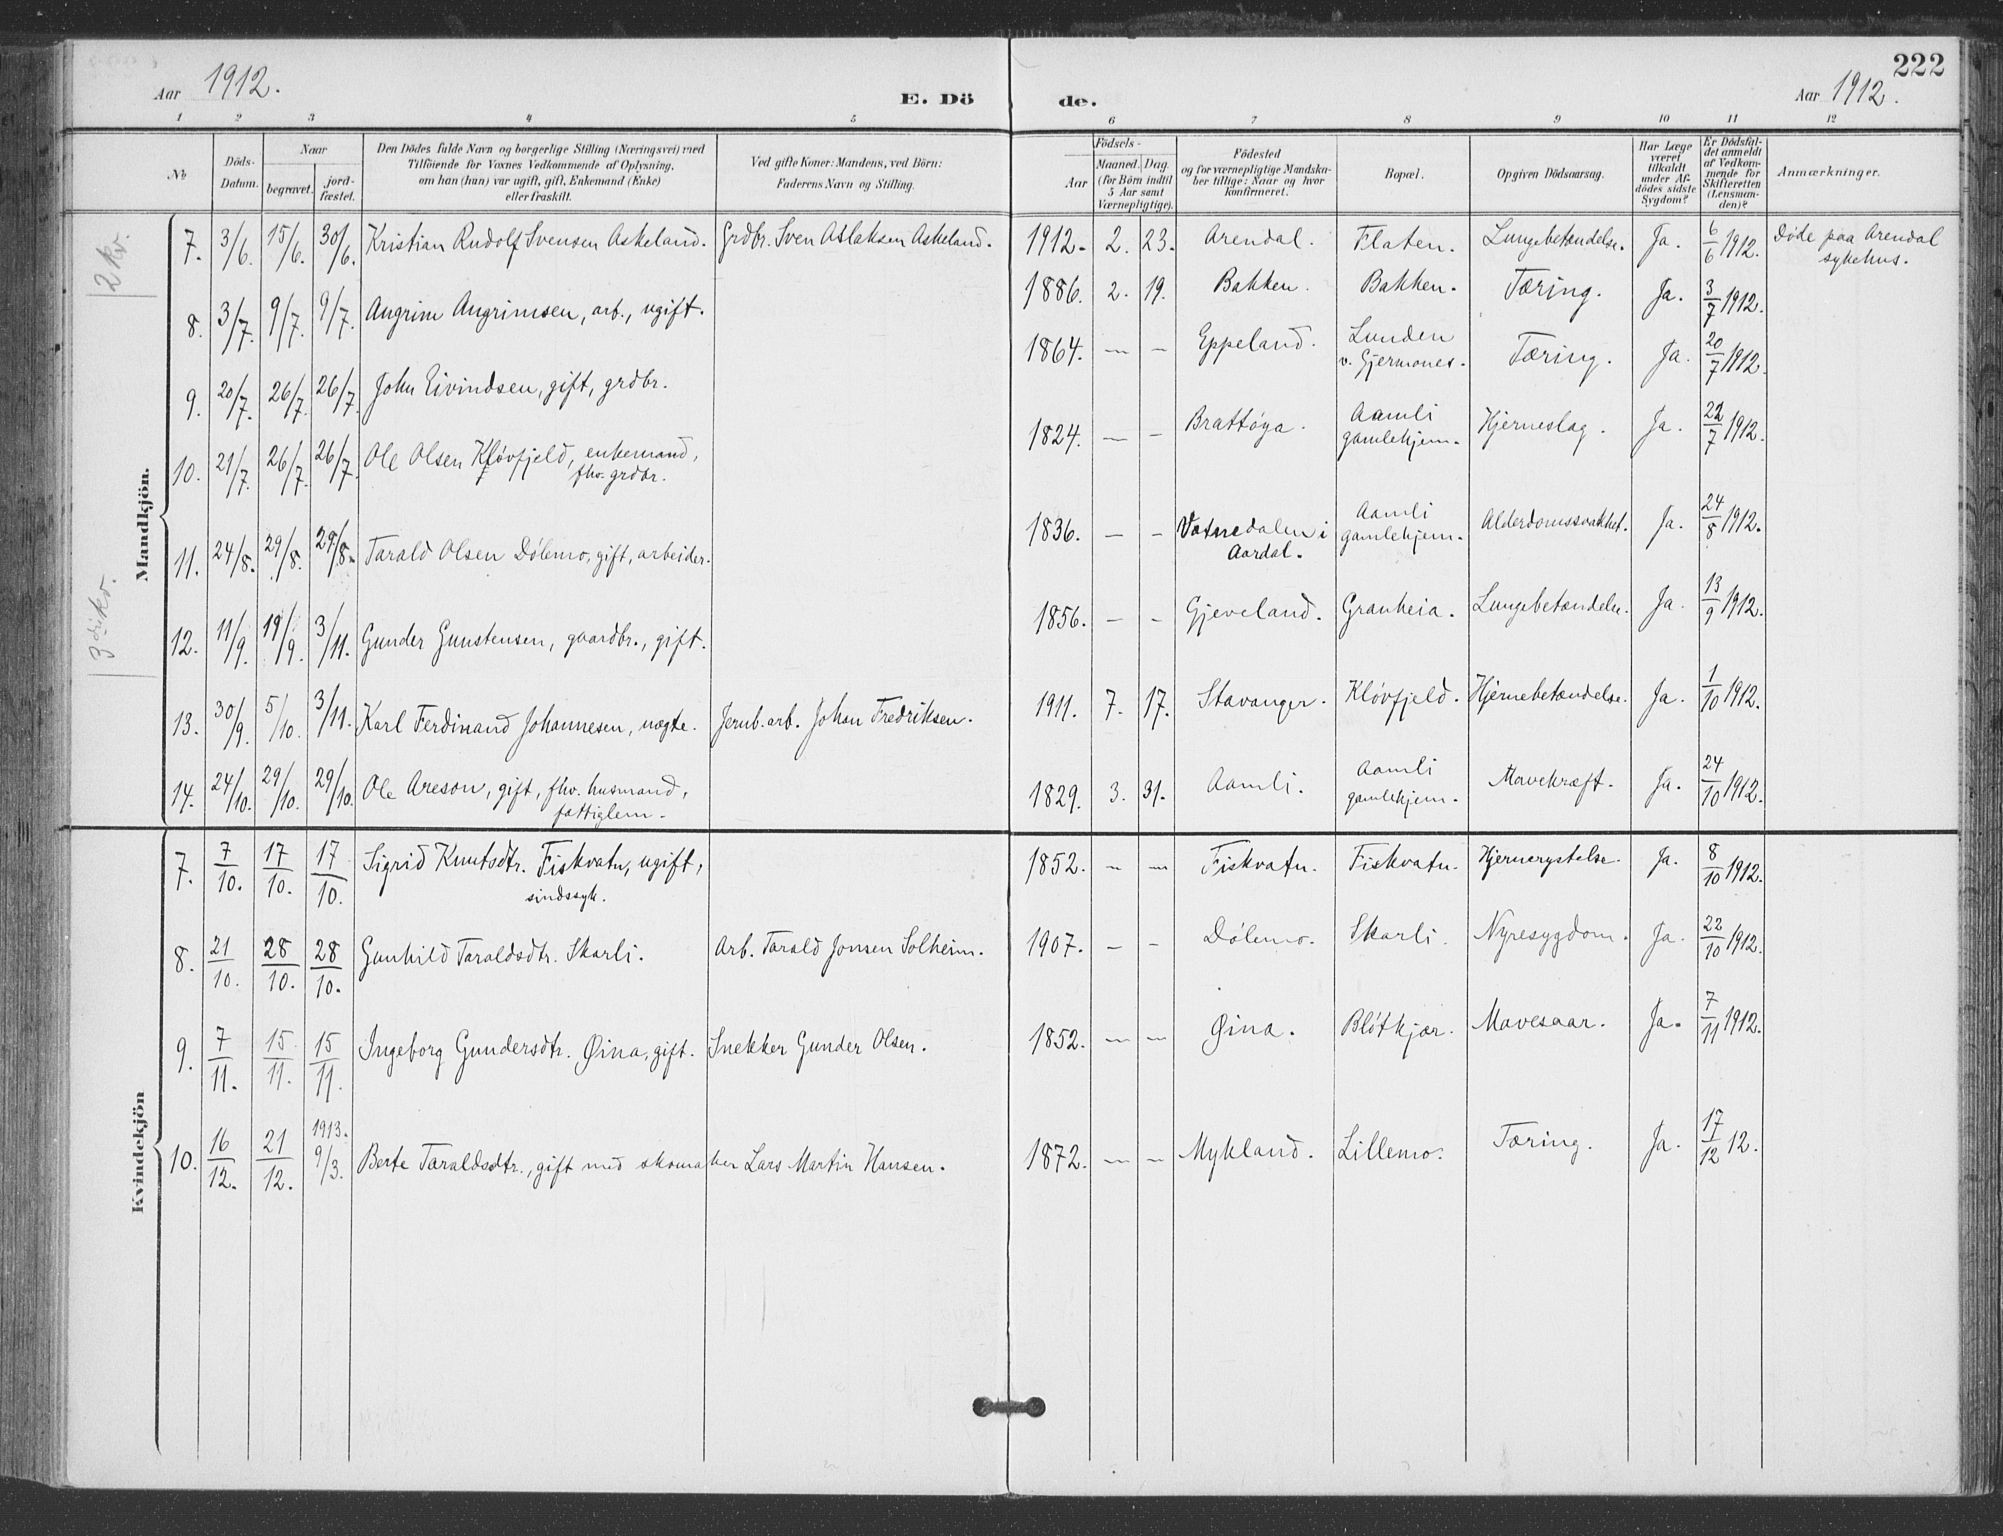 Aar 1912.
E. Dö
de.
Aar 1912.
222
1 2 3 4 5
6 7 8 9 10 11 12
№
Döds-
Datum.
Naar
begravet.
jord-
fæstet.
Den Dödes fulde Navn og borgerlige Stilling (Næringsvei) med
Tilföiende for Voxnes Vedkommende af Oplysning,
om han (hun) var ugift, gift, Enkemand (Enke)
eller fraskilt.
Ved gifte Koner: Mandens, ved Börn:
Faderens Navn og Stilling.
Födsels-
Aar
Maaned.
Dag.
(for Börn indtil
5 Aar samt
Værnepligtige).
Födested
og for værnepligtige Mandska-
ber tillige: Naar og hvor
konfirmeret.
Bopæl.
Opgiven Dödsaarsag.
Har Læge
været
tilkaldt
under Af-
dödes sidste
Sygdom?
Er Dödsfal-
det anmeldt
af Vedkom-
mende for
Skifteretten
(Lensman-
den)?
Anmærkninger.
2 kv.
Mandkjön.
7. 3/6. 15/6. 30/6. Kristian Rudolf Svensen Askeland. Grdbr. Sven Aslaksen Askeland. 1912. 2. 23. Arendal. Flaten. Lungebetændelse. Ja. 6/6 1912. Døde paa Arendal
sykehus.
8. 3/7. 9/7. 9/7. Angrim Angrimsen, arb., ugift. 1886. 2. 19. Bakken. Bakken. Tæring. Ja. 3/7 1912.
9. 20/7. 26/7. 26/7. John Eivindsen, gift, grdbr. 1864. — — Eppeland. Lunden
v. Gjermones. Tæring. Ja. 20/7 1912.
10. 21/7. 26/7. 26/7. Ole Olsen Kløvfjeld, enkemand,
fhv. grdbr. 1824. — — Brattøya. Aamli
gamlehjem. Hjerneslag. Ja. 22/7 1912.
11. 24/8. 29/8. 29/8. Tarald Olsen Dølemo, gift, arbeider. 1836. — — Vatnedalen i
Aardal. Aamli
gamlehjem. Alderdomssvakhet. Ja. 24/8 1912.
3 
12. 11/9. 19/9. 3/11. Gunder Gunstensen, gaardbr., gift. 1856. — — Gjeveland. Granheia. Lungebetændelse. Ja. 13/9 1912.
13. 30/9. 5/10. 3/11. Karl Ferdinand Johannesen, uægte. Jernb.arb. Johan Fredriksen. 1911. 7. 17. Stavanger. Kløvfjeld. Hjernebetændelse. Ja. 1/10 1912.
14. 24/10. 29/10. 29/10. Ole Areson, gift, fhv. husmand,
fattiglem. 1829. 3. 31. Aamli. Aamli
gamlehjem. Mavekræft. Ja. 24/10 1912.
Kvindekjön
7. 7/10. 17/10. 17/10. Sigrid Knutsdtr. Fiskvatn, ugift,
sindssyk. 1852. — — Fiskvatn. Fiskvatn. Hjernerystelse. Ja. 8/10 1912.
8. 21/10. 28/10. 28/10. Gunhild Taraldsdtr. Skarli. Arb. Tarald Jonsen Solheim. 1907. — — Dølemo. Skarli. Nyresygdom. Ja. 22/10 1912.
9. 7/11. 15/11. 15/11. Ingeborg Gundersdtr. Øina, gift. Snekker Gunder Olsen. 1852. — — Øina. Bløtkjær. Mavesaar. Ja. 7/11 1912.
10. 16/12. 21/12. 1913. 9/3. Berte Taraldsdtr., gift med skomaker Lars Martin Hansen. 1872. — — Mykland. Lillemo. Tæring. Ja. 17/12 12.